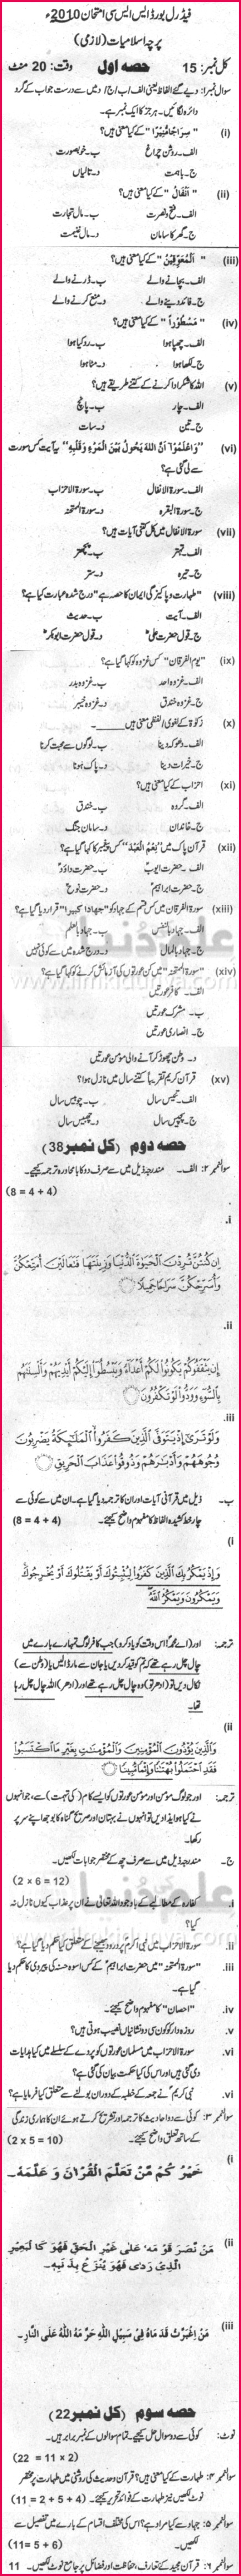 فیڈرل بورڈ ایس ایس سی امتحان 2010ء
پرچہ اسلامیات (لازمی)
کل نمبر: 15 حصہ اول وقت: 20 منٹ
سوال نمبر۱: دیے گئے الفاظ یعنی الف/ب/ج/د میں سے درست جواب کے گرد
دائرہ لگائیں۔ ہر جز کا ایک نمبر ہے۔
(i) "سِرَاجًا مُّنِیْرًا" کے کیا معنی ہیں؟
الف۔ روشن چراغ ب۔ خوبصورت
ج۔ باہمت د۔ تالیاں
(ii) "انفال" کے کیا معنی ہیں؟
الف۔ فتح ونصرت ب۔ مال تجارت
ج۔ گھر کا سامان د۔ مال غنیمت
(iii) "اَلْمُعَوِّقِیْنَ" کے کیا معنی ہیں؟
الف۔ بچانے والے ب۔ ڈرنے والے
ج۔ فائدہ دینے والے د۔ منع کرنے والے
(iv) "مَسْطُوْرًا" کے کیا معنی ہیں؟
الف۔ چھپا ہوا ب۔ رد کیا ہوا
ج۔ لکھا ہوا د۔ مٹا ہوا
(v) اللہ کا شکر ادا کرنے کے کتنے طریقے ہیں؟
الف۔ چار ب۔ پانچ
ج۔ تین د۔ سات
(vi) "وَاعْلَمُوْا اَنَّ اللہَ یَحُوْلُ بَیْنَ الْمَرْءِ وَقَلْبِهٖ" یہ آیت کس سورت
سے لی گئی ہے؟
الف۔ سورۃ الانفال ب۔ سورۃ الاحزاب
ج۔ سورۃ البقرہ د۔ سورۃ الممتحنہ
(vii) سورۃ الانفال میں کل کتنی آیات ہیں؟
الف۔ تہتر ب۔ پچھتر
ج۔ تیرہ د۔ ستر
(viii) "طہارت وپاکیزگی ایمان کا حصہ ہے" درج شدہ عبارت کیا ہے؟
الف۔ آیت ب۔ حدیث
ج۔ قول حضرت علیؓ د۔ قول حضرت ابوبکرؓ
(ix) "یوم الفرقان" کس غزوہ کو کہا گیا ہے؟
الف۔ غزوہ احد ب۔ غزوہ بدر
ج۔ غزوہ خندق د۔ غزوہ خیبر
(x) زکوٰۃ کے لغوی/لفظی معنی ہیں _____۔
الف۔ دھوکہ دینا ب۔ لوگوں سے محبت کرنا
ج۔ خیرات دینا د۔ پاک ہونا
(xi) احزاب کے کیا معنی ہیں؟
الف۔ گروہ ب۔ خندق
ج۔ خاندان د۔ سامان جنگ
(xii) قرآن پاک میں "نِعْمَ الْعَبْدُ" کس پیغمبر کو کہا گیا ہے؟
الف۔ حضرت ایوبؑ ب۔ حضرت داؤدؑ
ج۔ حضرت ابراہیمؑ د۔ حضرت نوحؑ
(xiii) سورۃ الفرقان میں کس قسم کے جہاد کو "جهادا کبیرا" قرار دیا گیا ہے؟
الف۔ جہاد بالنفس ب۔ جہاد بالعلم
ج۔ جہاد بالمال د۔ درج شدہ میں سے کوئی نہیں
(xiv) "سورۃ الممتحنہ" میں کن عورتوں کی آزمائش کرنے کو کہا گیا ہے؟
الف۔ کافر عورتیں
ب۔ مشرک عورتیں
ج۔ انصاری عورتیں
د۔ وطن چھوڑ کر آنے والی مومن عورتیں
(xv) قرآن کریم تقریباً کتنے سال میں نازل ہوا؟
الف۔ تئیس سال ب۔ چوبیس سال
ج۔ پچیس سال د۔ چھبیس سال
حصہ دوم (کل نمبر 38)
سوال نمبر ۲: الف۔ مندرجہ ذیل میں سے صرف دو کا بامحاورہ ترجمہ کیجیے۔
(8 = 4 + 4)
.i
إِن كُنتُنَّ تُرِدْنَ الْحَيَوٰةَ الدُّنْيَا وَزِينَتَهَا فَتَعَالَيْنَ أُمَتِّعْكُنَّ
وَأُسَرِّحْكُنَّ سَرَاحًا جَمِيلًا
.ii
إِن يَثْقَفُوكُمْ يَكُونُوا لَكُمْ أَعْدَاءً وَيَبْسُطُوا إِلَيْكُمْ أَيْدِيَهُمْ وَأَلْسِنَتَهُم
بِالسُّوءِ وَوَدُّوا لَوْ تَكْفُرُونَ
.iii
وَلَوْ تَرَىٰ إِذْ يَتَوَفَّى الَّذِينَ كَفَرُوا الْمَلَٰئِكَةُ يَضْرِبُونَ
وُجُوهَهُمْ وَأَدْبَٰرَهُمْ وَذُوقُوا عَذَابَ الْحَرِيقِ
ب۔ ذیل میں قرآنی آیات اور ان کا ترجمہ دیا گیا ہے۔ ان میں سے کوئی سے
چار خط کشیدہ الفاظ کا مفہوم واضح کیجیے۔
(8 = 4 + 4)
(i
وَإِذْ يَمْكُرُ بِكَ الَّذِينَ كَفَرُوا لِيُثْبِتُوكَ أَوْ يَقْتُلُوكَ أَوْ يُخْرِجُوكَ
وَيَمْكُرُونَ وَيَمْكُرُ اللَّهُ
ترجمہ: اور (اے محمدؐ! اس وقت کو یاد کرو) جب کافر لوگ تمہارے بارے میں
چال چل رہے تھے کہ تم کو قید کر دیں یا جان سے مار ڈالیں یا (وطن سے)
نکال دیں تو (ادھر تو) وہ چال چل رہے تھے اور (ادھر) اللہ چال چل رہا
تھا۔
(ii
وَالَّذِينَ يُؤْذُونَ الْمُؤْمِنِينَ وَالْمُؤْمِنَٰتِ بِغَيْرِ مَا اكْتَسَبُوا
فَقَدِ احْتَمَلُوا بُهْتَٰنًا وَإِثْمًا مُّبِينًا
ترجمہ: اور جو لوگ مومن اور مومن عورتوں کو ایسے کام (کی تہمت) سے، جو انہوں
نے کیا ہو ایذا دیں تو انہوں نے بہتان اور صریح گناہ کا بوجھ اپنے سر پر
رکھا۔
ج۔ مندرجہ ذیل میں سے صرف چھ کے مختصر جوابات لکھیں۔
(2 x 6 = 12)
i. کفار مکہ کے مطالبے کے باوجود اللہ تعالیٰ نے ان پر عذاب کیوں نازل نہ
کیا؟
ii. سورۃ الاحزاب میں نبی اکرمؐ پر درود بھیجنے کے متعلق کیا حکم دیا گیا ہے؟
iii. سورۃ الممتحنہ میں حضرت ابراہیمؑ کے کس اسوہ حسنہ کی پیروی کا حکم دیا
گیا ہے۔
iv. "احصان" کا مفہوم واضح کیجئے۔
v. روزہ دار کو کون سی دو نشانیاں نصیب ہوتی ہیں؟
vi. سورۃ الاحزاب میں مسلمان عورتوں کو پردے کے سلسلے میں کیا ہدایات
دی گئی ہیں اور اس کی کیا حکمت بیان کی گئی ہے؟
vi. نبی کریمؐ نے جمعہ کے خطبہ کے دوران بولنے سے متعلق کیا فرمایا ہے؟
سوال نمبر ۳: کوئی سے دو احادیث کا ترجمہ اور تشریح کرتے ہوئے ان کا ہماری زندگی
کے ساتھ تعلق واضح کیجئے۔ (2 x 5 = 10)
(i
خَیْرُ کُمْ مَّنْ تَعَلَّمَ الْقُرْاٰنَ وَ عَلَّمَهٗ۔
(ii مَنْ نَّصَرَ قَوْ مَهٗ عَلٰی غَیْرِ الْحَقِّ فَھُوَ کَا لْبَعِیْرِ
الَّذِیْ رَدٰی فَھُوَ یُنْزَعُ بِذَ نَبِهٖ۔
(iii مَنْ اِغْبَرَّتْ قَدَ مَاهُ فِیْ سَبِیْلِ اللّٰهِ حَرَّ مَهُ اللّٰهُ عَلَی النَّارِ۔
حصہ سوم (کل نمبر 22)
نوٹ: کوئی سے دو سوال حل کیجیے۔ تمام سوالوں کے نمبر برابر ہیں۔
(22 = 11 x 2)
سوال نمبر ۴: طہارت کے کیا معنی ہیں؟ قرآن وحدیث کی روشنی میں طہارت پر مختصر
نوٹ لکھیں نیز طہارت کے فوائد تحریر کیجئے۔ (11 = 2 + 5 + 4)
سوال نمبر ۵: جہاد سے کیا مراد ہے؟ اس کی مختلف اقسام کے بارے میں تفصیل سے
لکھیں۔ (11= 5 + 6)
سوال نمبر ۶: قرآن مجید کے تعارف، حفاظت اور فضائل پر جامع نوٹ لکھیں۔ 11